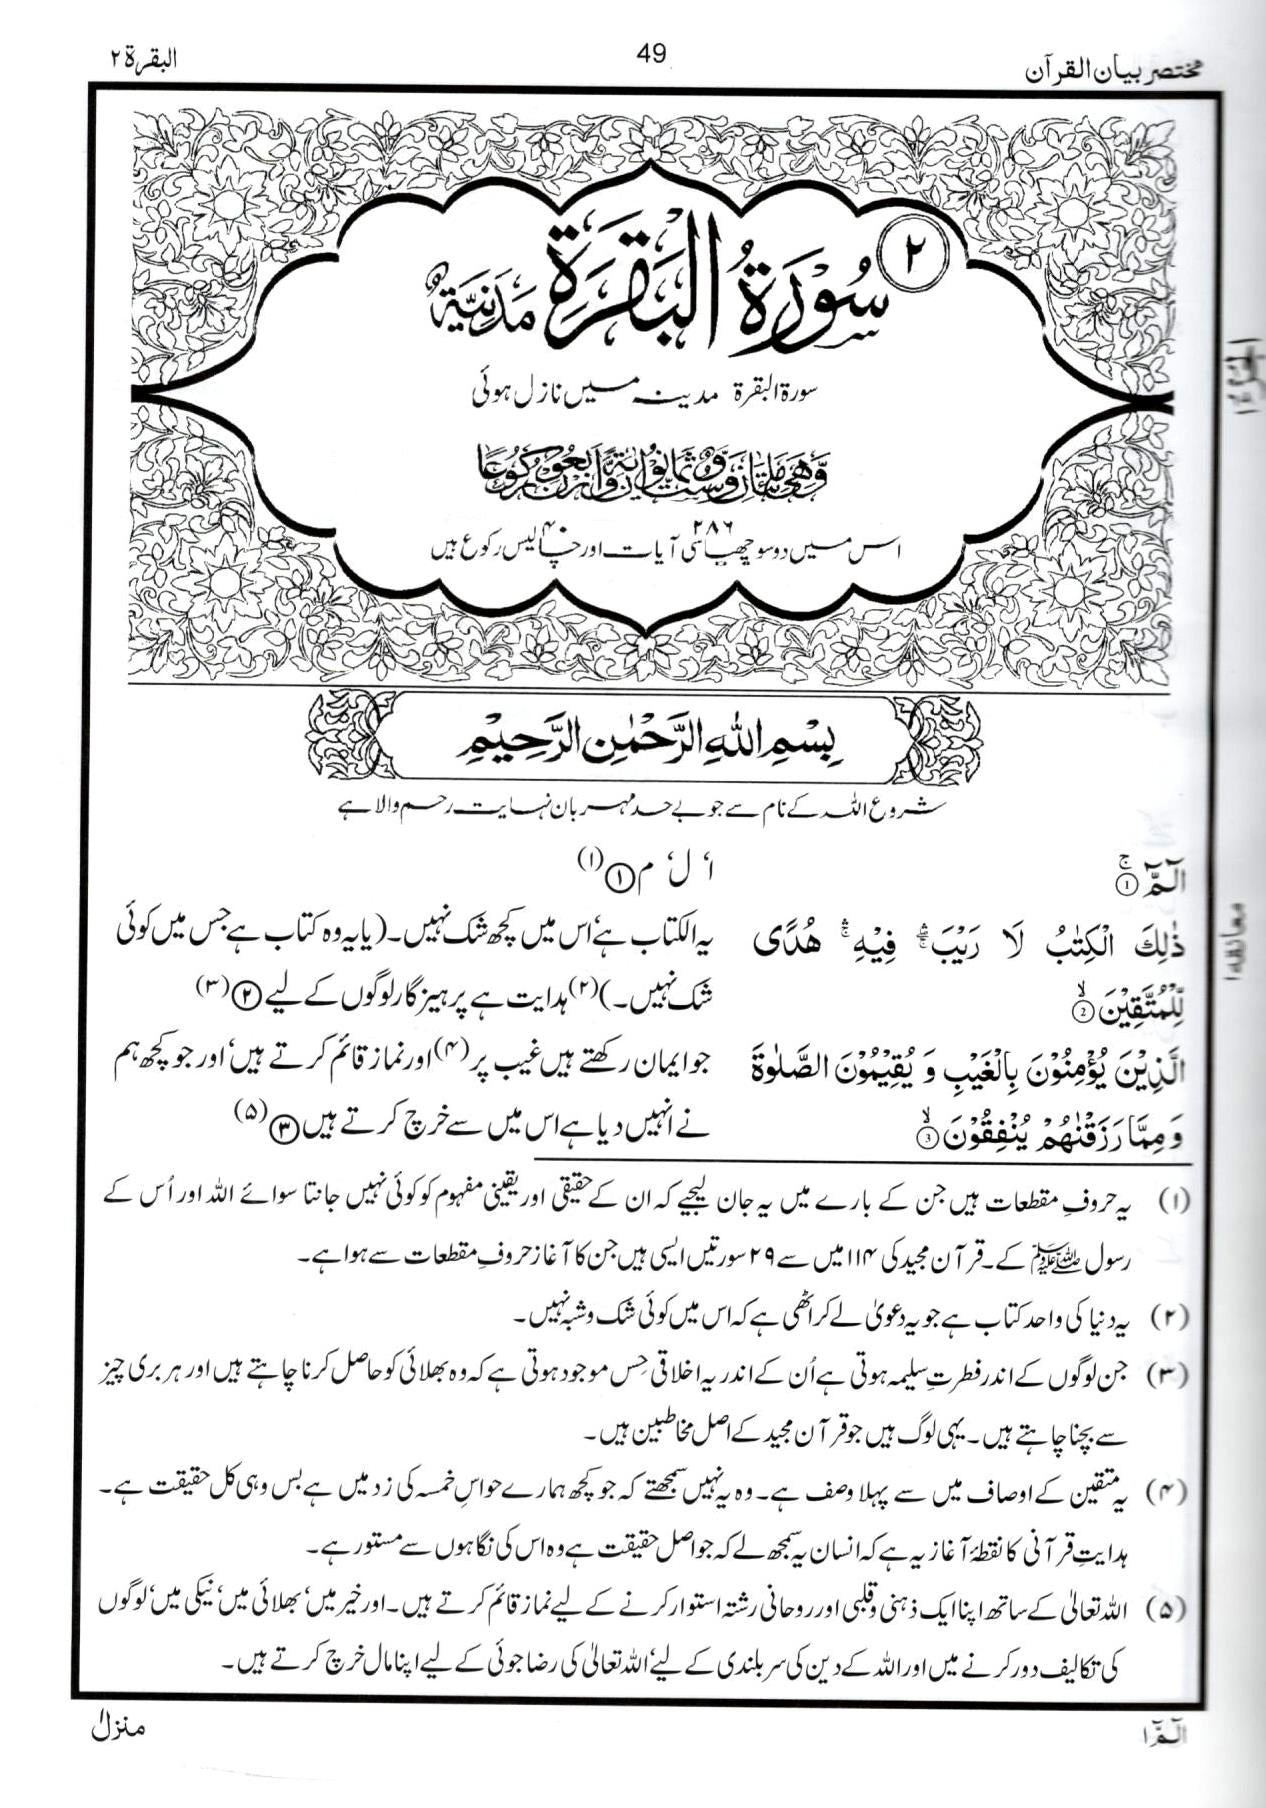 مختصر بیان القرآن
49
البقرۃ ۲
۲
سُوْرَةُ الْبَقَرَةِ مَدَنِيَّةٌ
سورۃ البقرۃ مدینہ میں نازل ہوئی
وَّهِيَ مِائَتَانِ وَّسِتٌّ وَّثَمَانُوْنَ اٰيَةً وَّاَرْبَعُوْنَ رُكُوْعًا
اس میں دو سو چھیاسی ۲۸۶ آیات اور چالیس ۴۰ رکوع ہیں
بِسْمِ اللهِ الرَّحْمٰنِ الرَّحِيْمِ
شروع اللہ کے نام سے جو بے حد مہربان نہایت رحم والا ہے
الٓمّٓ ۚ①
ا‘ ل‘ م ① (۱)
ذٰلِكَ الْكِتٰبُ لَا رَيْبَ ۛۚ فِيْهِ ۛۚ هُدًى
یہ الکتاب ہے‘ اس میں کچھ شک نہیں۔ (یا یہ وہ کتاب ہے جس میں کوئی
لِّلْمُتَّقِيْنَ ۙ②
شک نہیں۔) (۲) ہدایت ہے پرہیزگار لوگوں کے لیے ② (۳)
الَّذِيْنَ يُؤْمِنُوْنَ بِالْغَيْبِ وَ يُقِيْمُوْنَ الصَّلٰوةَ
جو ایمان رکھتے ہیں غیب پر (۴) اور نماز قائم کرتے ہیں‘ اور جو کچھ ہم
وَ مِمَّا رَزَقْنٰهُمْ يُنْفِقُوْنَ ۙ③
نے انہیں دیا ہے اس میں سے خرچ کرتے ہیں ③ (۵)
(۱) یہ حروفِ مقطعات ہیں جن کے بارے میں یہ جان لیجیے کہ ان کے حقیقی اور یقینی مفہوم کو کوئی نہیں جانتا سوائے اللہ اور اُس کے
رسول ﷺ کے۔ قرآن مجید کی ۱۱۴ میں سے ۲۹ سورتیں ایسی ہیں جن کا آغاز حروفِ مقطعات سے ہوا ہے۔
(۲) یہ دنیا کی واحد کتاب ہے جو یہ دعویٰ لے کر اٹھی ہے کہ اس میں کوئی شک و شبہ نہیں۔
(۳) جن لوگوں کے اندر فطرتِ سلیمہ ہوتی ہے اُن کے اندر یہ اخلاقی حِس موجود ہوتی ہے کہ وہ بھلائی کو حاصل کرنا چاہتے ہیں اور ہر بری چیز
سے بچنا چاہتے ہیں۔ یہی لوگ ہیں جو قرآن مجید کے اصل مخاطبین ہیں۔
(۴) یہ متقین کے اوصاف میں سے پہلا وصف ہے۔ وہ یہ نہیں سمجھتے کہ جو کچھ ہمارے حواسِ خمسہ کی زد میں ہے بس وہی کل حقیقت ہے۔
ہدایتِ قرآنی کا نقطۂ آغاز یہ ہے کہ انسان یہ سمجھ لے کہ جو اصل حقیقت ہے وہ اس کی نگاہوں سے مستور ہے۔
(۵) اللہ تعالیٰ کے ساتھ اپنا ایک ذہنی و قلبی اور روحانی رشتہ استوار کرنے کے لیے نماز قائم کرتے ہیں۔ اور خیر میں‘ بھلائی میں‘ نیکی میں‘ لوگوں
کی تکالیف دور کرنے میں اور اللہ کے دین کی سربلندی کے لیے‘ اللہ تعالیٰ کی رضا جوئی کے لیے اپنا مال خرچ کرتے ہیں۔
معانقہ ۱
الٓمّٓ ۱
منزل ۱